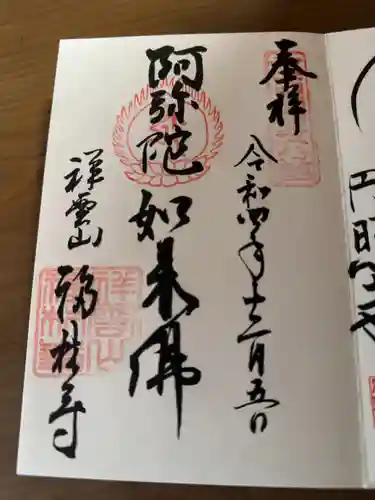 奉拝
令和四年十二月五日
阿弥陀如来佛
祥雲山
福林寺